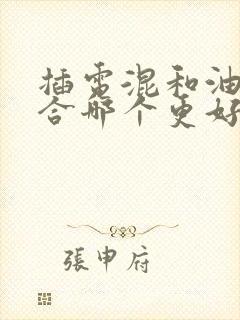 插电混和油
合哪个更好
張申府